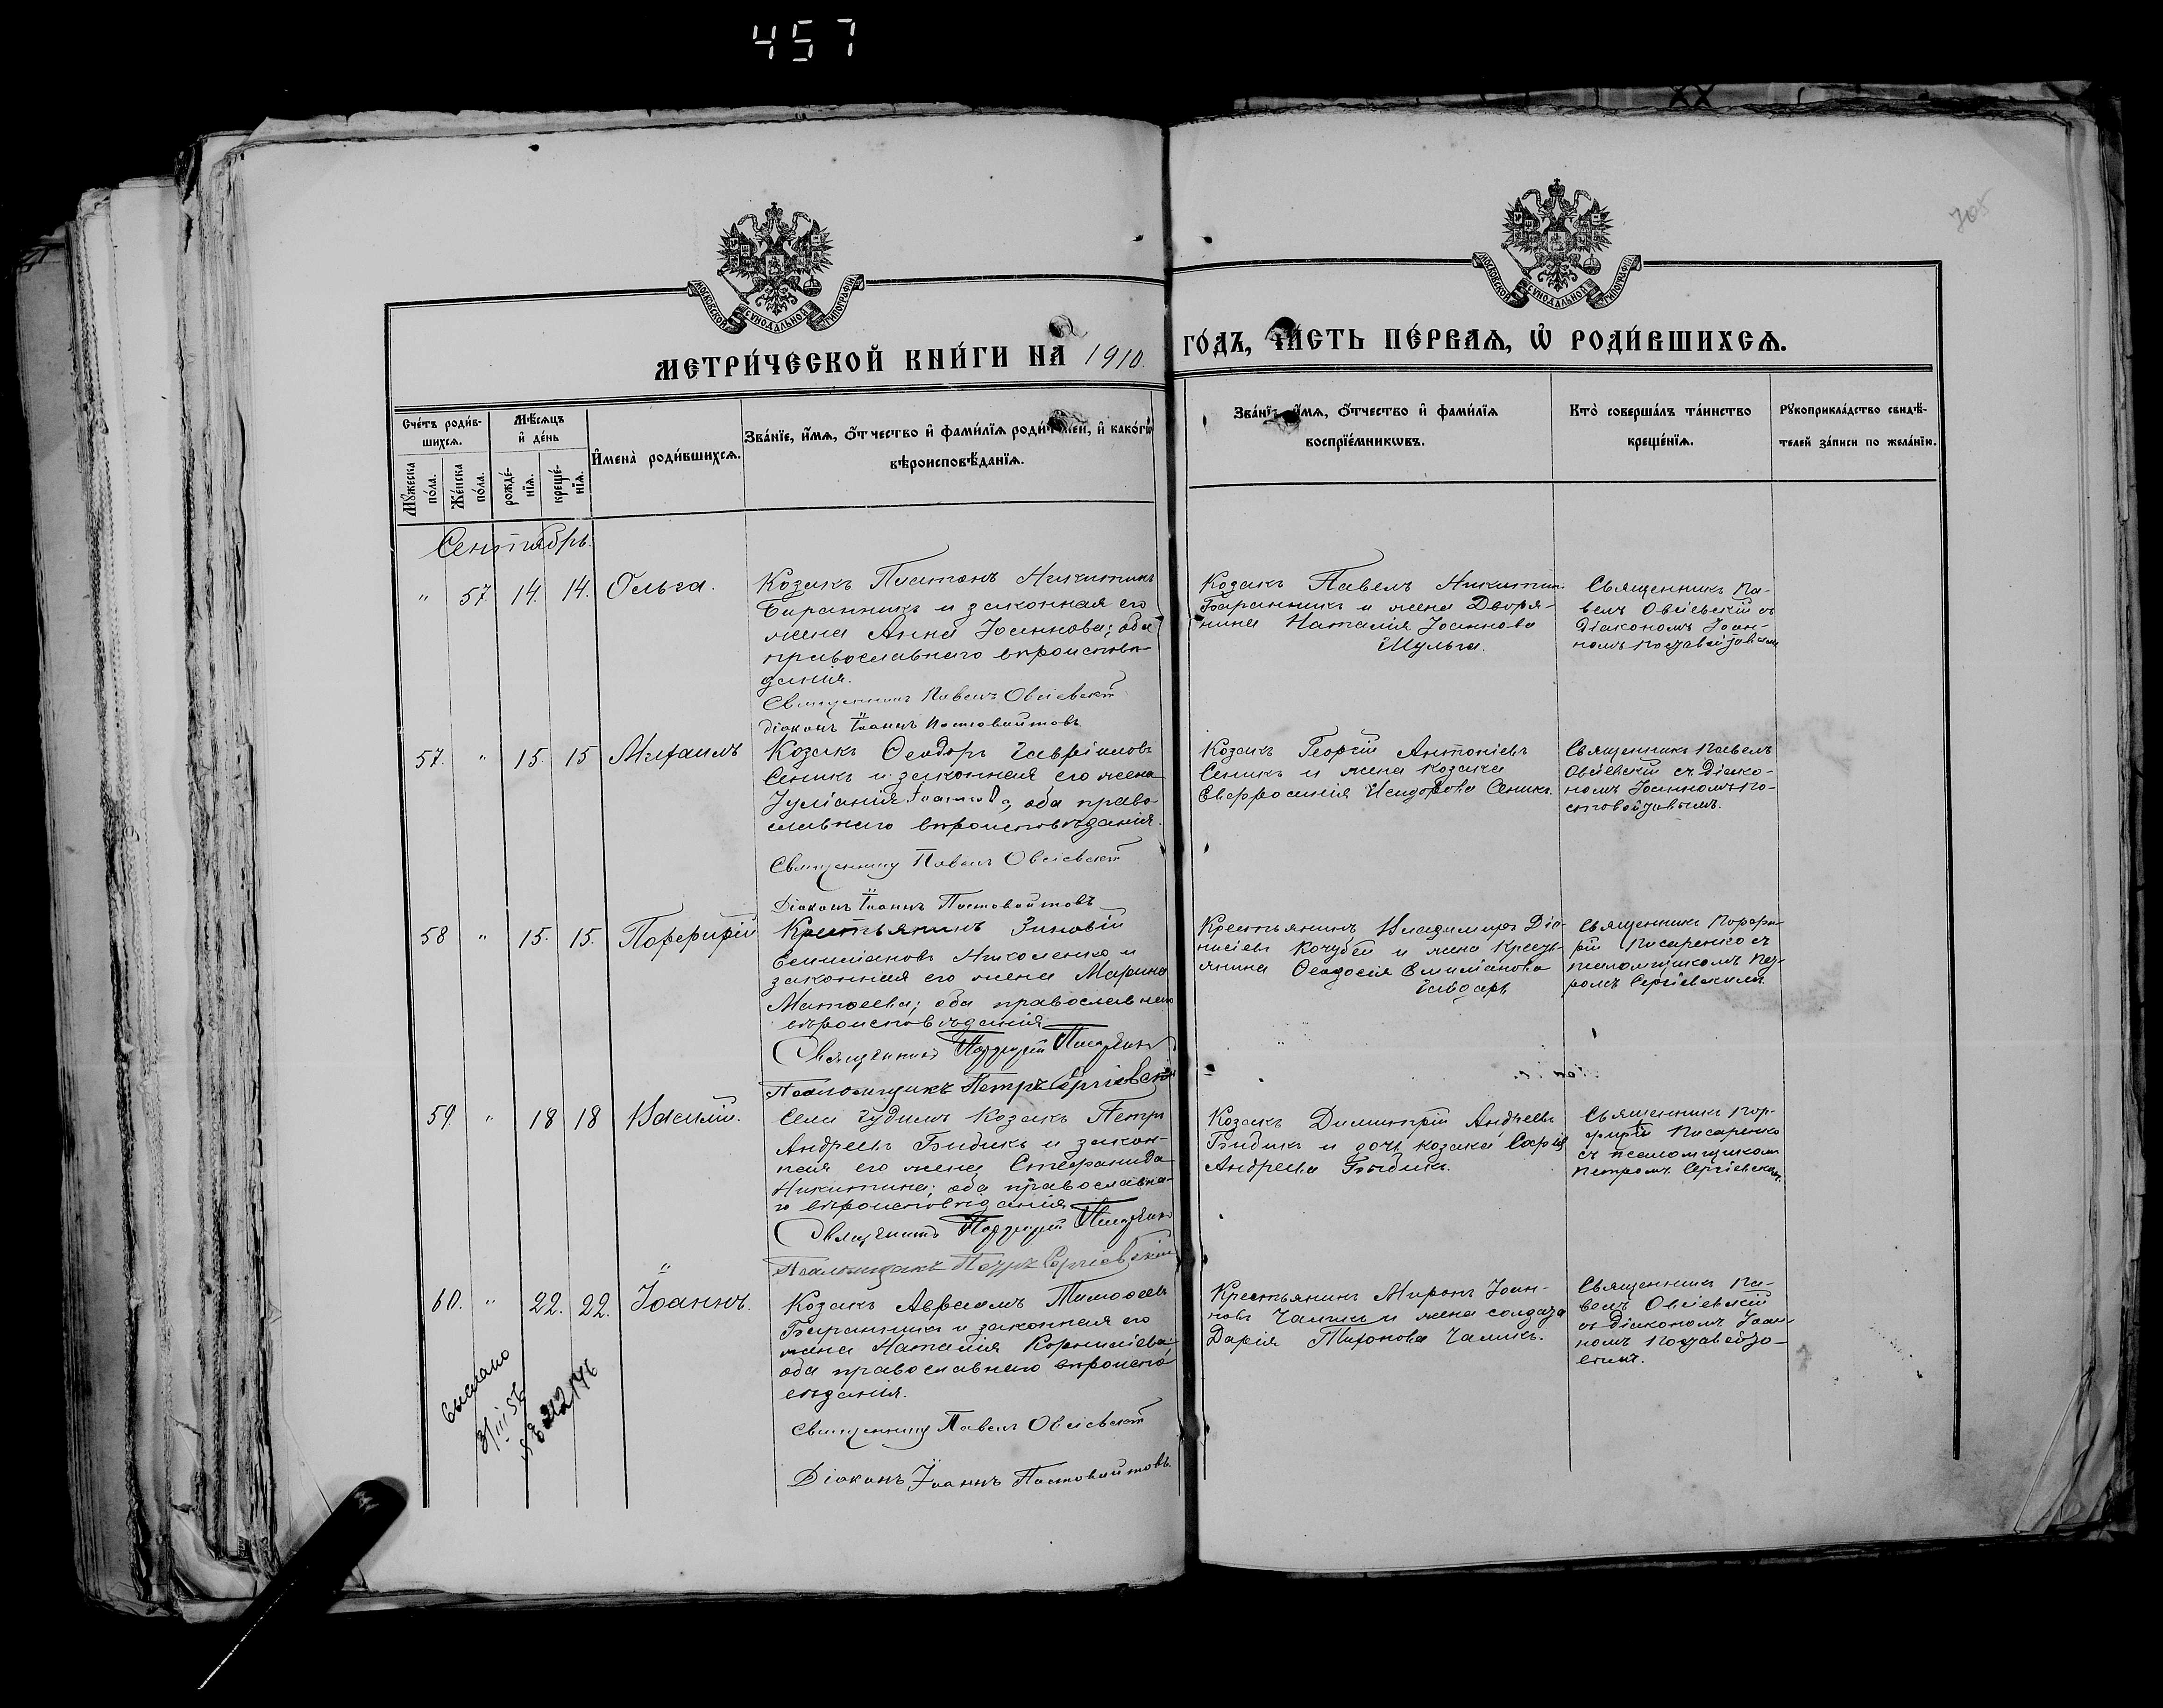 457
705
МОСКОВСКОЙ СѴНОДАЛЬНОЙ ТИПОГРАФІИ
МОСКОВСКОЙ СѴНОДАЛЬНОЙ ТИПОГРАФІИ
МЕТРИ́ЧЕСКОЙ КНИ́ГИ НА 1910.
ГО́ДЪ, ЧА́СТЬ ПЕ́РВАѦ, Ѡ҆ РОДИ́ВШИХСѦ.
Сче́тъ роди́в-
шихсѧ.
Мꙋ́жеска по́ла.
Же́нска по́ла.
Мѣ́сѧцъ
и҆ де́нь
рожде́-
нїѧ.
креще́-
нїѧ.
И҆мена̀ роди́вшихсѧ.
Зва́нїе, и҆́мѧ, ѻ҆́тчество и҆ фами́лїѧ роди́телей, и҆ како́гѡ
вѣроисповѣ́данїѧ.
Зва́нїе, и҆́мѧ, ѻ҆́тчество и҆ фами́лїѧ
воспрїе́мникѡвъ.
Кто̀ соверша́лъ та́инство
креще́нїѧ.
Рꙋкоприкла́дство свидѣ́-
телей за́писи по жела́нїю.
Сентябрь.
" 57 14. 14. Ольга.
Козакъ Платонъ Никитинъ
Баранникъ и законная его
жена Анна Іоаннова; оба
православнаго вѣроисповѣ-
данія.
Священникъ Павелъ Овсіевскій
Діаконъ Іоаннъ Постовойтовъ
Козакъ Павелъ Никитин.
Баранникъ и жена Дворя-
нина Наталія Іоаннова
Шульга.
Священникъ Па-
велъ Овсіевскій съ
діакономъ Іоан-
номъ Постовойтовым
57. " 15. 15 Михаилъ
Козакъ Ѳеодоръ Гавріиловъ
Сеникъ и законная его жена
Іуліанія Іоаннова, оба право-
славнаго вѣроисповѣданія.
Священникъ Павелъ Овсіевскій
Діаконъ Іоаннъ Постовойтовъ
Козакъ Георгій Антоніевъ
Сеникъ и жена козака
Евфросинія Исидорова Сеникъ.
Священникъ Павелъ
Овсіевскій съ діако-
номъ Іоанномъ По-
стовойтовымъ.
58 " 15. 15. Порфирій
Крестьянинъ Зиновій
Емиліановъ Николенко и
законная его жена Марина
Матѳеева; оба православнаго
вѣроисповѣданія
Священникъ Порфирій Писаренко
Псаломщикъ Петръ Сергіевскій
Крестьянинъ Владимиръ Діо-
нисіевъ Кочубей и жена кресть-
янина Ѳеодосія Емиліанова
Священникъ Порфи-
рій Писаренко съ
псаломщикомъ Пет-
ромъ Сергіевскимъ.
59. " 18 18 Василій.
Села Козакъ Петръ
Андреевъ Бидикъ и закон-
ная его жена Стефанида
Никитина; оба православна-
го вѣроисповѣданія
Священникъ Порфирій Писаренко
Псаломщикъ Петръ Сергіевскій
Козакъ Димитрій Андреевъ
Бидикъ и дочь козака Софія
Андреева Бидикъ.
Священникъ Пор-
фирій Писаренко
съ псаломщикомъ
Петромъ Сергіевским.
60. " 22. 22. Іоаннъ.
Козакъ Авраамъ Тимоѳеевъ
Баранникъ и законная его
жена Наталія Корниліева;
оба православнаго вѣроиспо-
вѣданія.
Священникъ Павелъ Овсіевскій
Діаконъ Іоаннъ Постовойтовъ.
Крестьянинъ Миронъ Іоан-
новъ Чаликъ и жена солдата
Дарія Тихонова Чаликъ.
Священникъ Па-
велъ Овсіевскій
съ діакономъ Іоан-
номъ Постовойто-
вымъ.
выслано
31/III 56